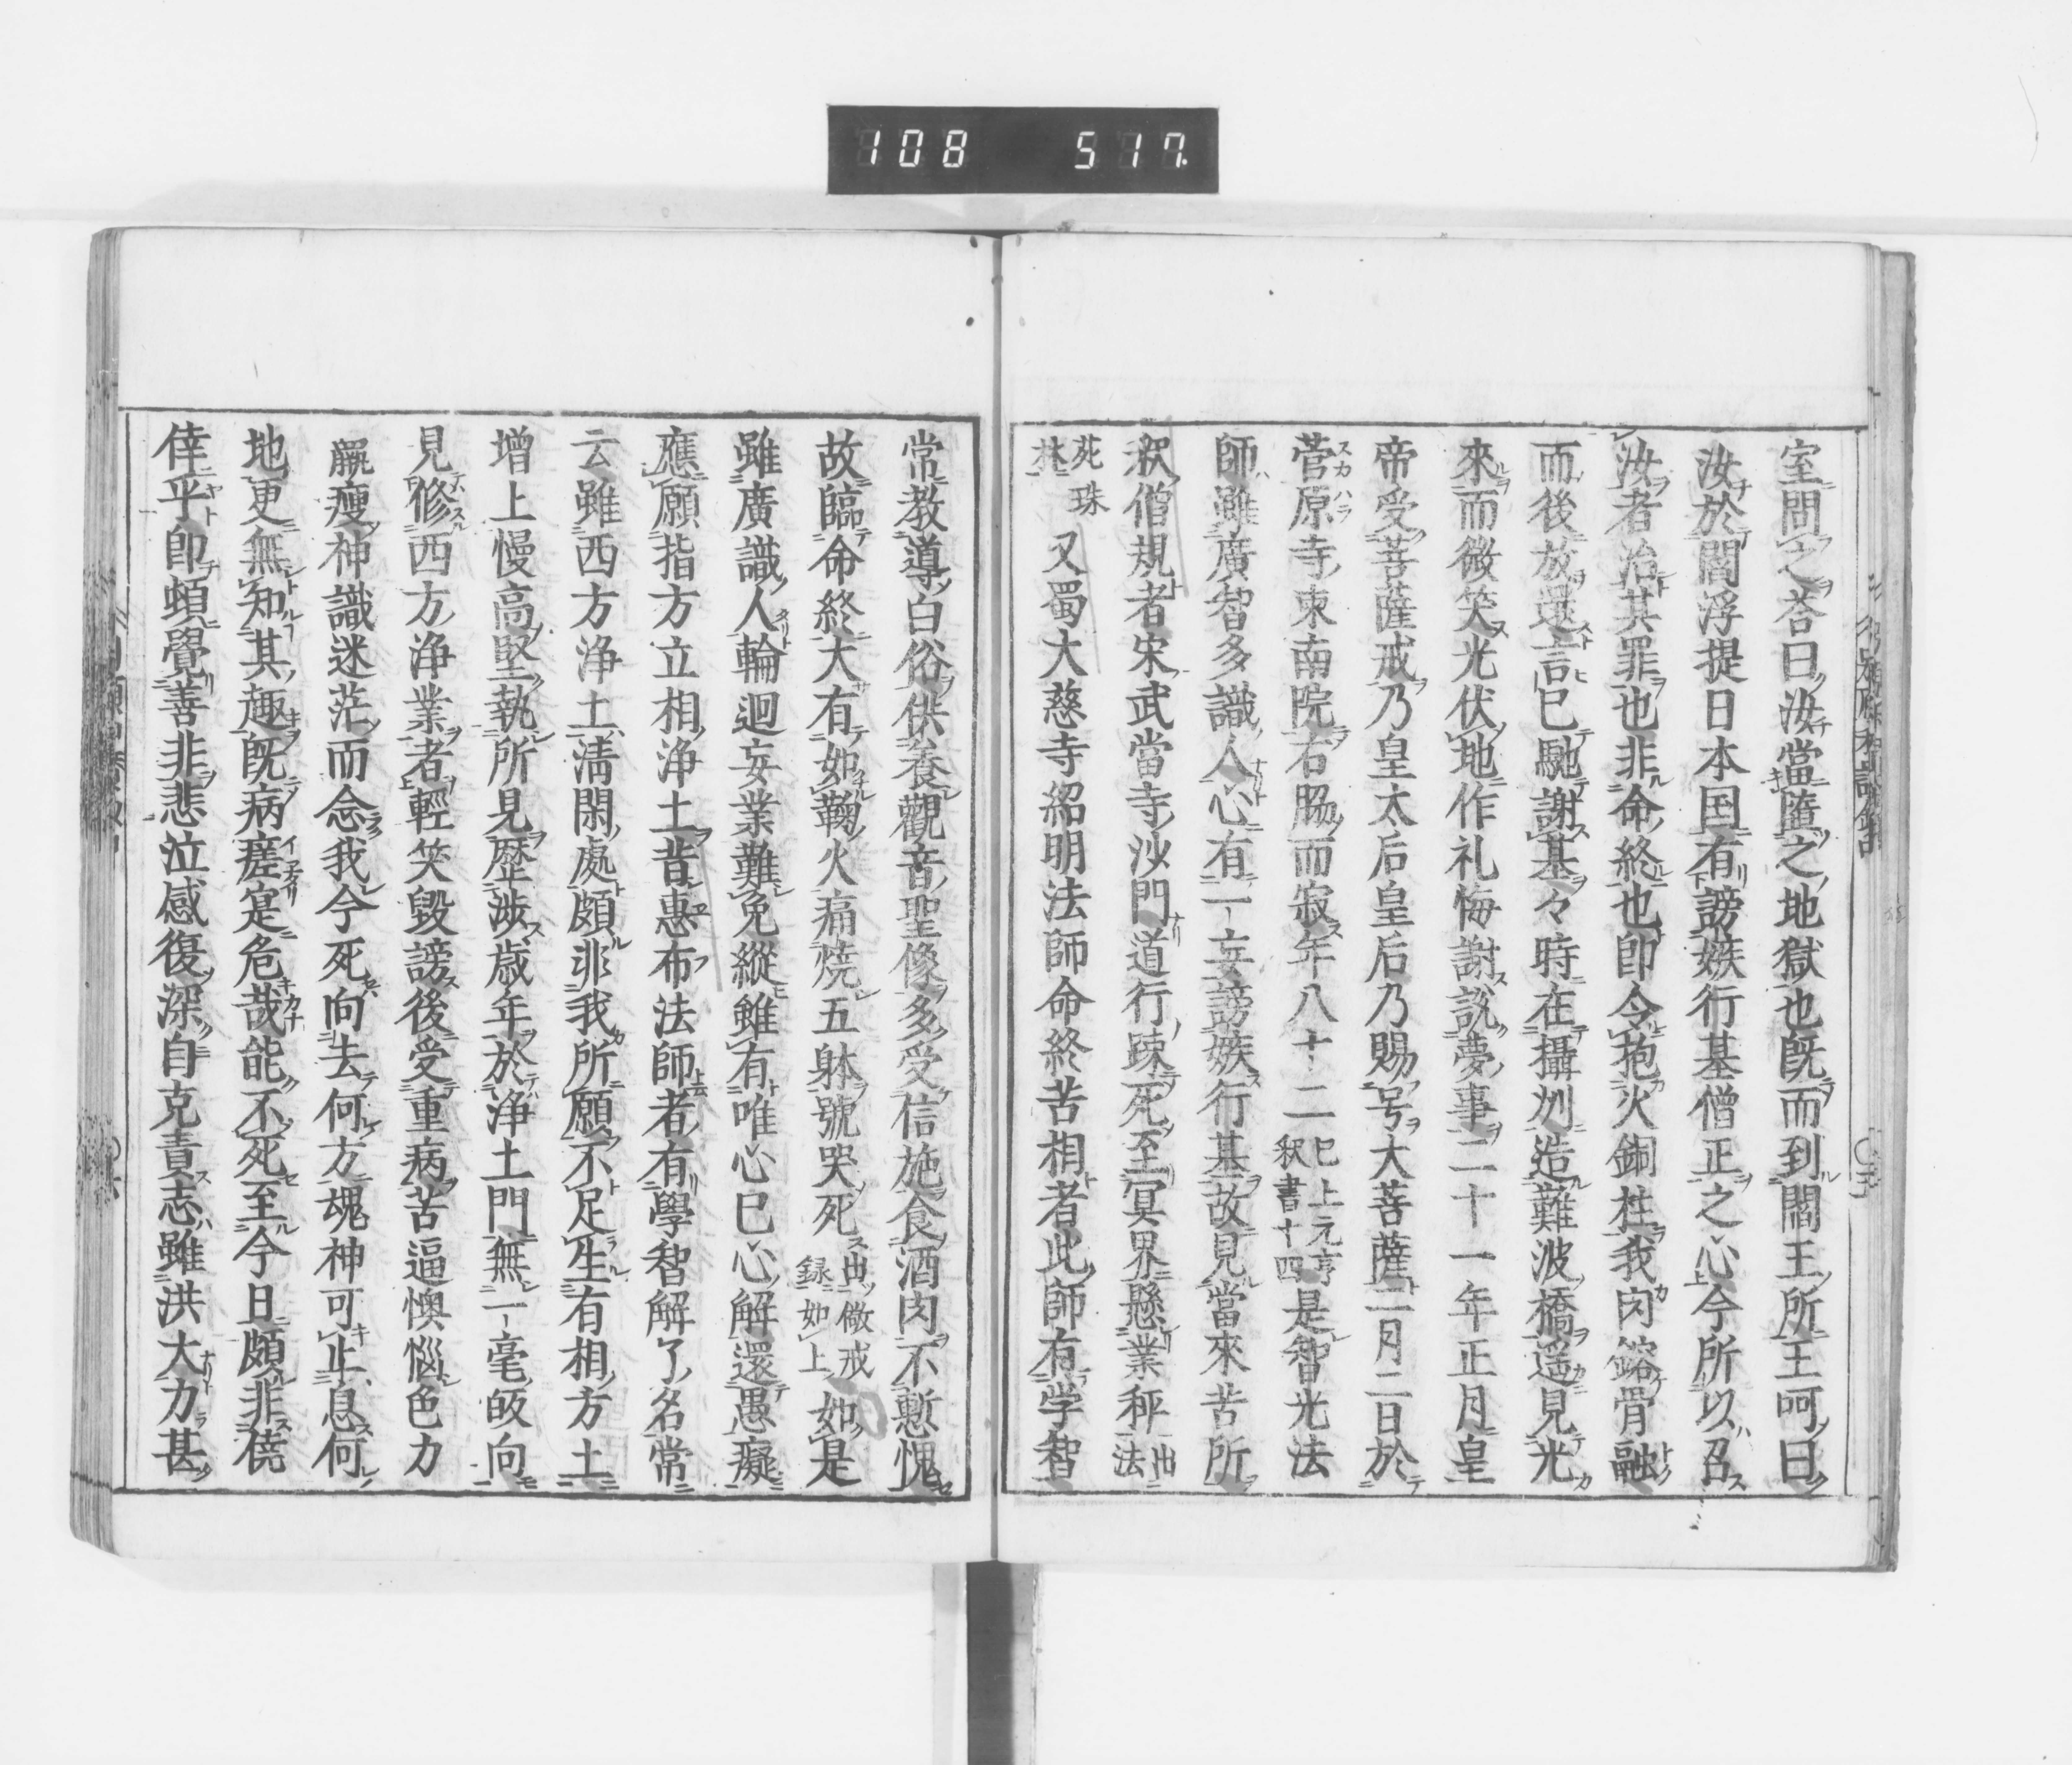 108 517
室問之答曰汝當墮之地獄也既而到閻王所王呵曰
汝於閻浮提日本国有謗嫉行基僧正之心今所以召
汝者治其罪也非命終也即令抱火銅柱我肉鎔骨融
而後放還言已馳謝基々時在攝州造難波橋遥見光
來而微笑光伏地作礼悔謝説夢事二十一年正月皇
帝受菩薩戒乃皇太后皇后乃賜号大菩薩二月二日於
菅原寺東南院右脇而寂年八十二已上元亨釈書十四是智光法
師雖廣智多識人心有一妄謗嫉行基故見當來苦所
釈僧規者宋武當寺沙門道行踈死至冥界懸業秤出法
苑珠林又蜀大慈寺紹明法師命終苦相者此師有学智
常教導白俗供養觀音聖像多受信施食酒肉不慙愧
故臨命終大有如鞠火痛焼五躰號哭死出儆戒録如上如是
雖廣識人輪迴妄業難免縱雖有唯心已心解還愚癡
應願指方立相浄土昔惠布法師者有學智解了名常
云雖西方浄土淸閑處頗非我所願不足生有相方土
增上慢高堅執所見歷渉歳年於浄土門無一毫皈向
見修西方浄業者輕笑毀謗後受重病苦逼懊惱色力
羸瘦神識迷茫而念我今死向去何方魂神可止息何
地更無知其趣既病瘥寔危哉能不死至今日頗非僥
倖乎即頓覺善非悲泣感復深自克責志雖洪大力甚